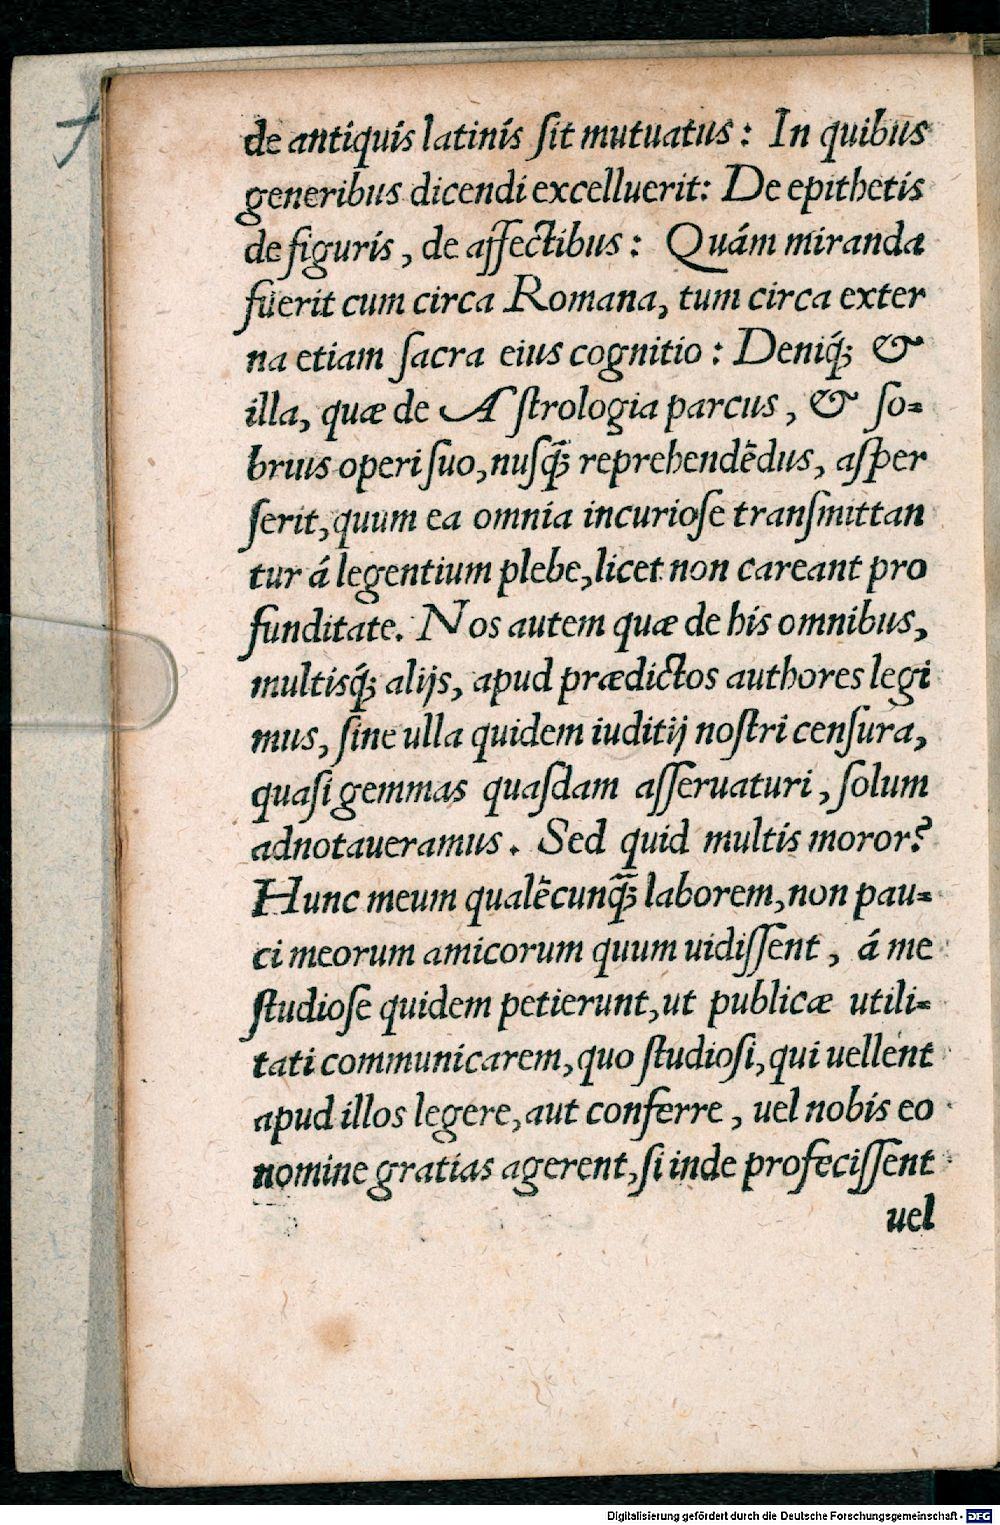 de antiquis latinis ſit mutuatus : In quibus
generibus dicendi excelluerit: De epithetis
de figuris, de affectibus : Quám miranda
fuerit cum circa Romana, tum circa exter
na etiam ſacra eius cognitio : Deniq́; &
illa, quæ de Aſtrologia parcus, & ſo=
brius operi ſuo, nuſq̃; reprehendẽdus, aſper
ſerit, quum ea omnia incurioſe tranſmittan
tur á legentium plebe, licet non careant pro
funditate. Nos autem quæ de his omnibus,
multisq́; alijs, apud prædictos authores legi
mus, ſine ulla quidem iuditij noſtri cenſura,
quaſi gemmas quaſdam aſſeruaturi, ſolum
adnotaueramus. Sed quid multis moror?
Hunc meum qualẽcunq̃; laborem, non pau=
ci meorum amicorum quum uidiſſent, á me
ſtudioſe quidem petierunt, ut publicæ utili=
tati communicarem, quo ſtudioſi, qui uellent
apud illos legere, aut conferre, uel nobis eo
nomine gratias agerent, ſi inde profeciſſent
uel
Digitalisierung gefördert durch die Deutsche Forschungsgemeinschaft - DFG